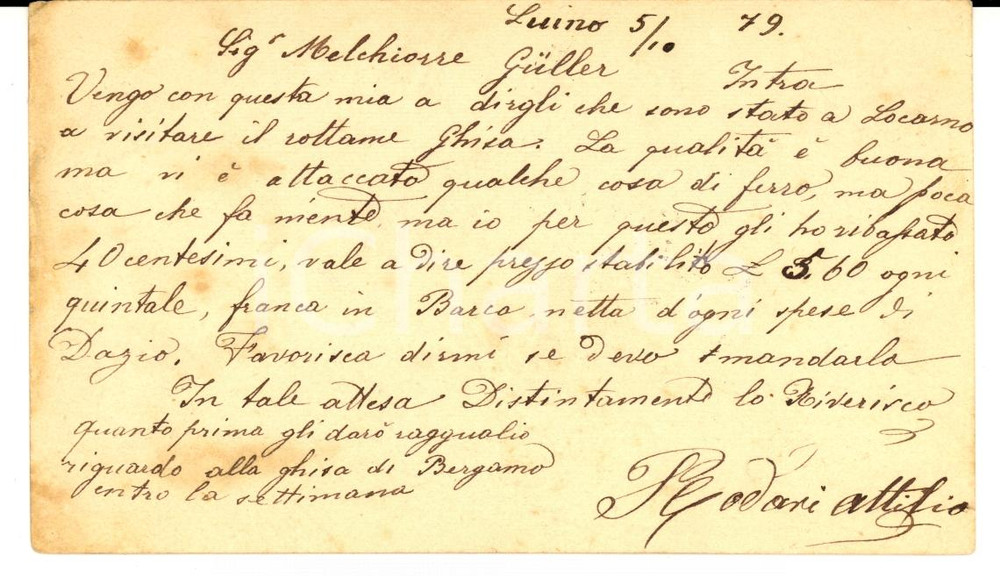 Luino 5/10 79.
Sigr Melchiorre Güller Intra
Vengo con questa mia a dirgli che sono stato a Locarno
a visitare il rottame Ghisa. La qualità è buona
ma vi è attaccato qualche cosa di ferro, ma poca
cosa che fa niente, ma io per questo gli ho ribassato
40 centesimi, vale a dire prezzo stabilito £ 5.60 ogni
quintale, franca in Barca netta d'ogni spese di
Dazio. Favorisca dirmi se devo mandarla
In tale attesa Distintamente lo Riverisco
quanto prima gli darò raggualio
riguardo alla ghisa di Bergamo
entro la settimana
Rodari Attilio
iCharta